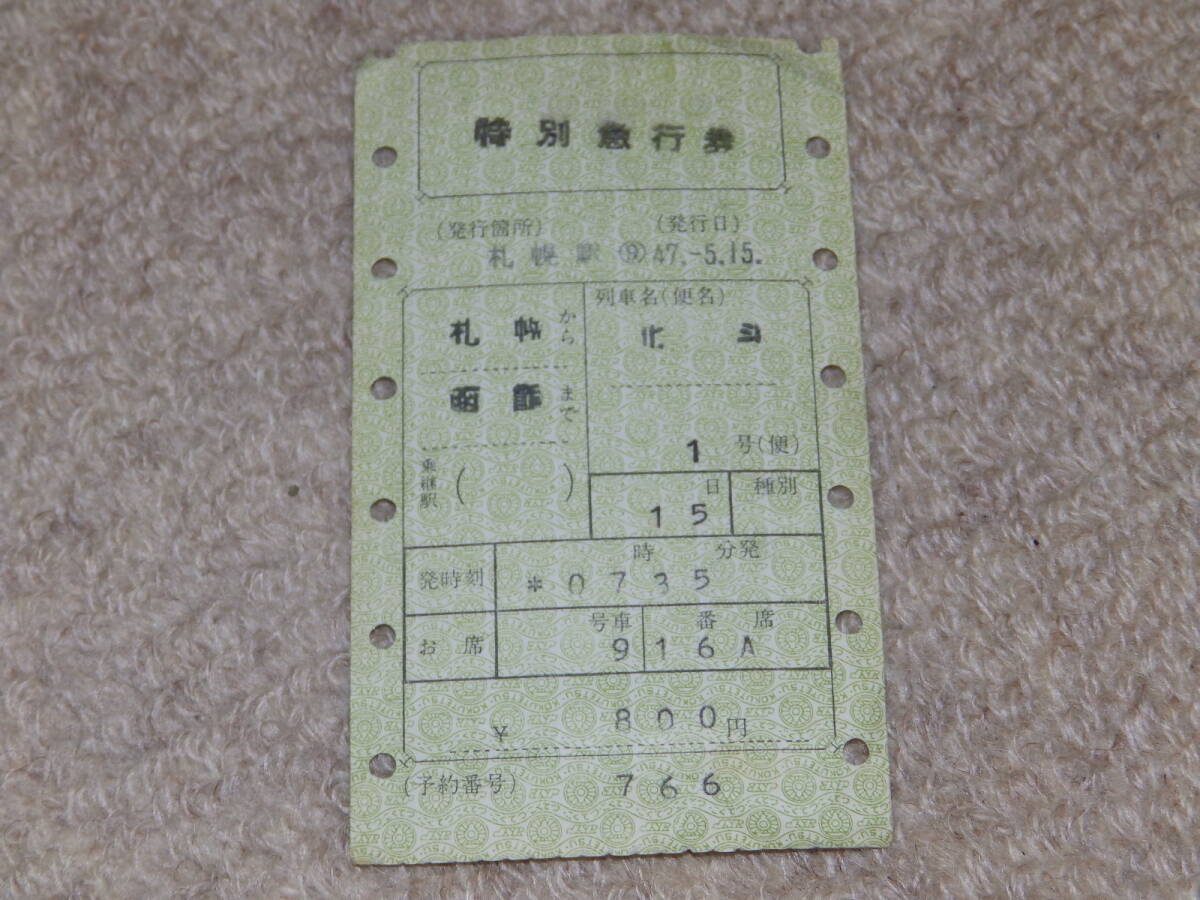 特別急行券
(発行箇所) (発行日)
札幌駅 ⑨ 47.-5.15.
札幌から
函館まで
乗継駅 ( )
列車名(便名)
北斗
1 号(便)
日 種別
15
時 分発
発時刻 *0735
号車 番席
お席 9 16A
¥ 800円
(予約番号) 766